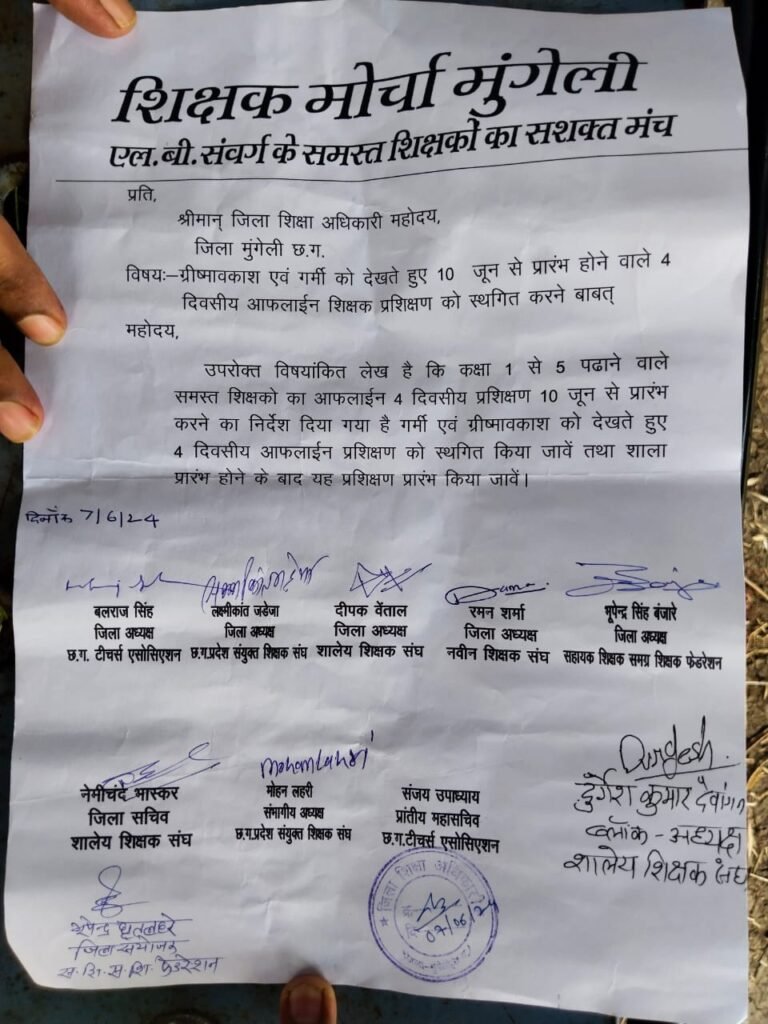 शिक्षक मोर्चा मुंगेली
एल.बी.संवर्ग के समस्त शिक्षकों का सशक्त मंच
प्रति,
श्रीमान् जिला शिक्षा अधिकारी महोदय,
जिला मुंगेली छ.ग.
विषयः–ग्रीष्मावकाश एवं गर्मी को देखते हुए 10 जून से प्रारंभ होने वाले 4
दिवसीय आफलाईन शिक्षक प्रशिक्षण को स्थगित करने बाबत्
महोदय,
उपरोक्त विषयांकित लेख है कि कक्षा 1 से 5 पढाने वाले
समस्त शिक्षको का आफलाईन 4 दिवसीय प्रशिक्षण 10 जून से प्रारंभ
करने का निर्देश दिया गया है गर्मी एवं ग्रीष्मावकाश को देखते हुए
4 दिवसीय आफलाईन प्रशिक्षण को स्थगित किया जावें तथा शाला
प्रारंभ होने के बाद यह प्रशिक्षण प्रारंभ किया जावें।
दिनाँक 7/6/24
बलराज सिंह लक्ष्मीकांत जडेजा दीपक वेंताल रमन शर्मा भूपेन्द्र सिंह बंजारे
जिला अध्यक्ष जिला अध्यक्ष जिला अध्यक्ष जिला अध्यक्ष जिला अध्यक्ष
छ.ग. टीचर्स एसोसिएशन छ.ग.प्रदेश संयुक्त शिक्षक संघ शालेय शिक्षक संघ नवीन शिक्षक संघ सहायक शिक्षक समग्र शिक्षक फेडरेशन
Mohan Lahri
Durgesh
नेमीचंद भास्कर मोहन लहरी संजय उपाध्याय
जिला सचिव संभागीय अध्यक्ष प्रांतीय महासचिव
शालेय शिक्षक संघ छ.ग.प्रदेश संयुक्त शिक्षक संघ छ.ग.टीचर्स एसोसिएशन
दुर्गेश कुमार देवांगन
ब्लॉक - अध्यक्ष
शालेय शिक्षक संघ
जिला शिक्षा अधिकारी
07/06/24
जिला संयोजक
स. शि. स. शि. फेडरेशन